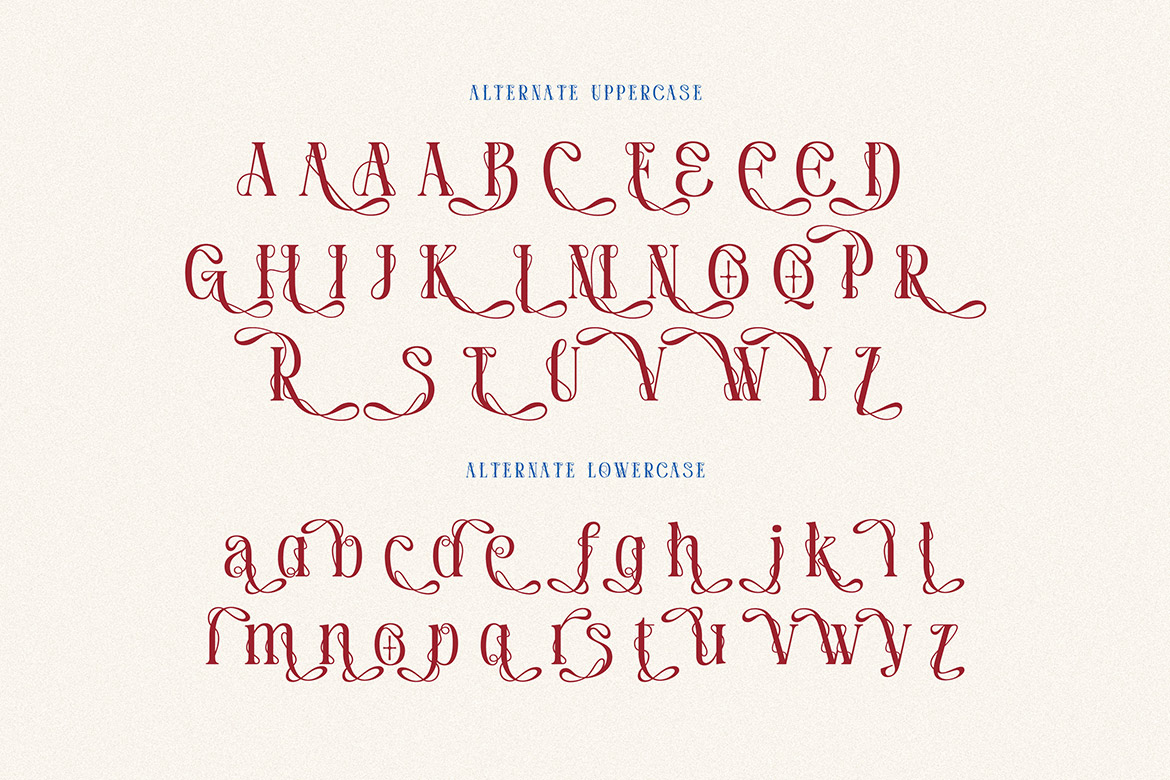 ALTERNATE UPPERCASE
A A A A B C E E E E D
G H I J K L M N O Q P R
R S T U V W Y Z
ALTERNATE LOWERCASE
a a b c d e f g h j k l l
l m n o p q r s t u v w y z